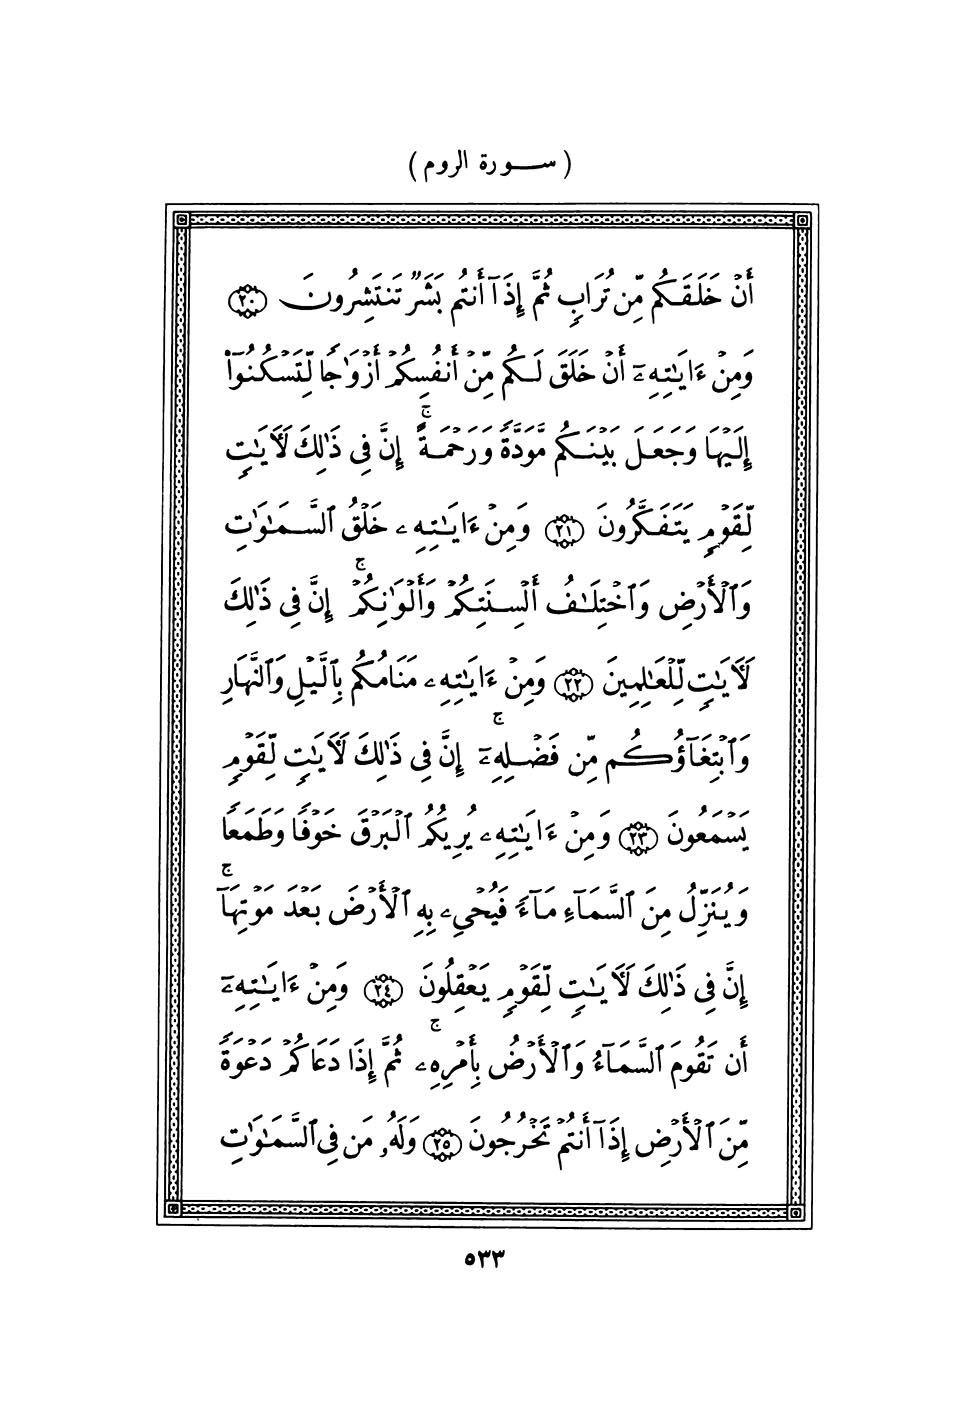 ( ســورة الروم )
أَنْ خَلَقَكُم مِّن تُرَابٍ ثُمَّ إِذَآ أَنتُم بَشَرٌ تَنتَشِرُونَ ﴿٢٠﴾
وَمِنْ ءَايَـٰتِهِۦٓ أَنْ خَلَقَ لَكُم مِّنْ أَنفُسِكُمْ أَزْوَٰجًا لِّتَسْكُنُوٓا۟
إِلَيْهَا وَجَعَلَ بَيْنَكُم مَّوَدَّةً وَرَحْمَةً ۚ إِنَّ فِى ذَٰلِكَ لَـَٔايَـٰتٍ
لِّقَوْمٍ يَتَفَكَّرُونَ ﴿٢١﴾ وَمِنْ ءَايَـٰتِهِۦ خَلْقُ ٱلسَّمَـٰوَٰتِ
وَٱلْأَرْضِ وَٱخْتِلَـٰفُ أَلْسِنَتِكُمْ وَأَلْوَٰنِكُمْ ۚ إِنَّ فِى ذَٰلِكَ
لَـَٔايَـٰتٍ لِّلْعَـٰلِمِينَ ﴿٢٢﴾ وَمِنْ ءَايَـٰتِهِۦ مَنَامُكُم بِٱلَّيْلِ وَٱلنَّهَارِ
وَٱبْتِغَآؤُكُم مِّن فَضْلِهِۦٓ ۚ إِنَّ فِى ذَٰلِكَ لَـَٔايَـٰتٍ لِّقَوْمٍ
يَسْمَعُونَ ﴿٢٣﴾ وَمِنْ ءَايَـٰتِهِۦ يُرِيكُمُ ٱلْبَرْقَ خَوْفًا وَطَمَعًا
وَيُنَزِّلُ مِنَ ٱلسَّمَآءِ مَآءً فَيُحْىِۦ بِهِ ٱلْأَرْضَ بَعْدَ مَوْتِهَآ ۚ
إِنَّ فِى ذَٰلِكَ لَـَٔايَـٰتٍ لِّقَوْمٍ يَعْقِلُونَ ﴿٢٤﴾ وَمِنْ ءَايَـٰتِهِۦٓ
أَن تَقُومَ ٱلسَّمَآءُ وَٱلْأَرْضُ بِأَمْرِهِۦ ۚ ثُمَّ إِذَا دَعَاكُمْ دَعْوَةً
مِّنَ ٱلْأَرْضِ إِذَآ أَنتُمْ تَخْرُجُونَ ﴿٢٥﴾ وَلَهُۥ مَن فِى ٱلسَّمَـٰوَٰتِ
٥٣٣